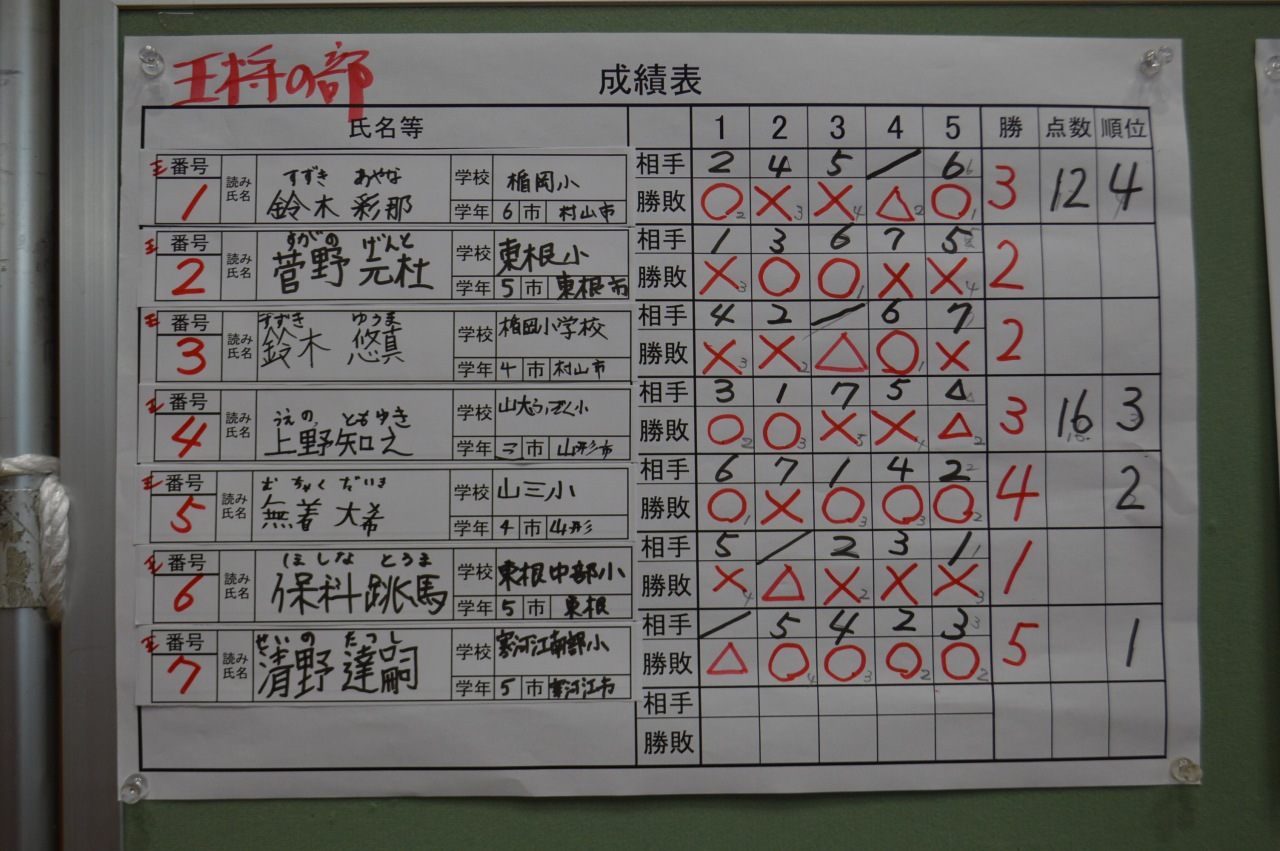 王将の部
成績表
氏名等 1 2 3 4 5 勝 点数 順位
王 番号 1 読み すずき あやな 学校 楯岡小 相手 2 4 5 / 6 3 12 4
氏名 鈴木 彩那 学年 6 市 村山市 勝敗 ○ × × △ ○
王 番号 2 読み すがの げんと 学校 東根小 相手 1 3 6 7 5 2
氏名 菅野 元杜 学年 5 市 東根市 勝敗 × ○ ○ × ×
王 番号 3 読み すずき ゆうま 学校 楯岡小学校 相手 4 2 / 6 7 2
氏名 鈴木 悠真 学年 4 市 村山市 勝敗 × × △ ○ ×
王 番号 4 読み うえの ともゆき 学校 山大ふぞく小 相手 3 1 7 5 △ 3 16 3
氏名 上野知之 学年 三 市 山形市 勝敗 ○ ○ × × △
王 番号 5 読み むちゃく だいき 学校 山三小 相手 6 7 1 4 2 4 2
氏名 無着 大希 学年 4 市 山形 勝敗 ○ × ○ ○ ○
王 番号 6 読み ほしな とうま 学校 東根中部小 相手 5 / 2 3 1 1
氏名 保科跳馬 学年 5 市 東根 勝敗 × △ × × ×
王 番号 7 読み せいの たつし 学校 寒河江南部小 相手 / 5 4 2 3 5 1
氏名 清野 達嗣 学年 5 市 寒河江市 勝敗 △ ○ ○ ○ ○
相手
勝敗